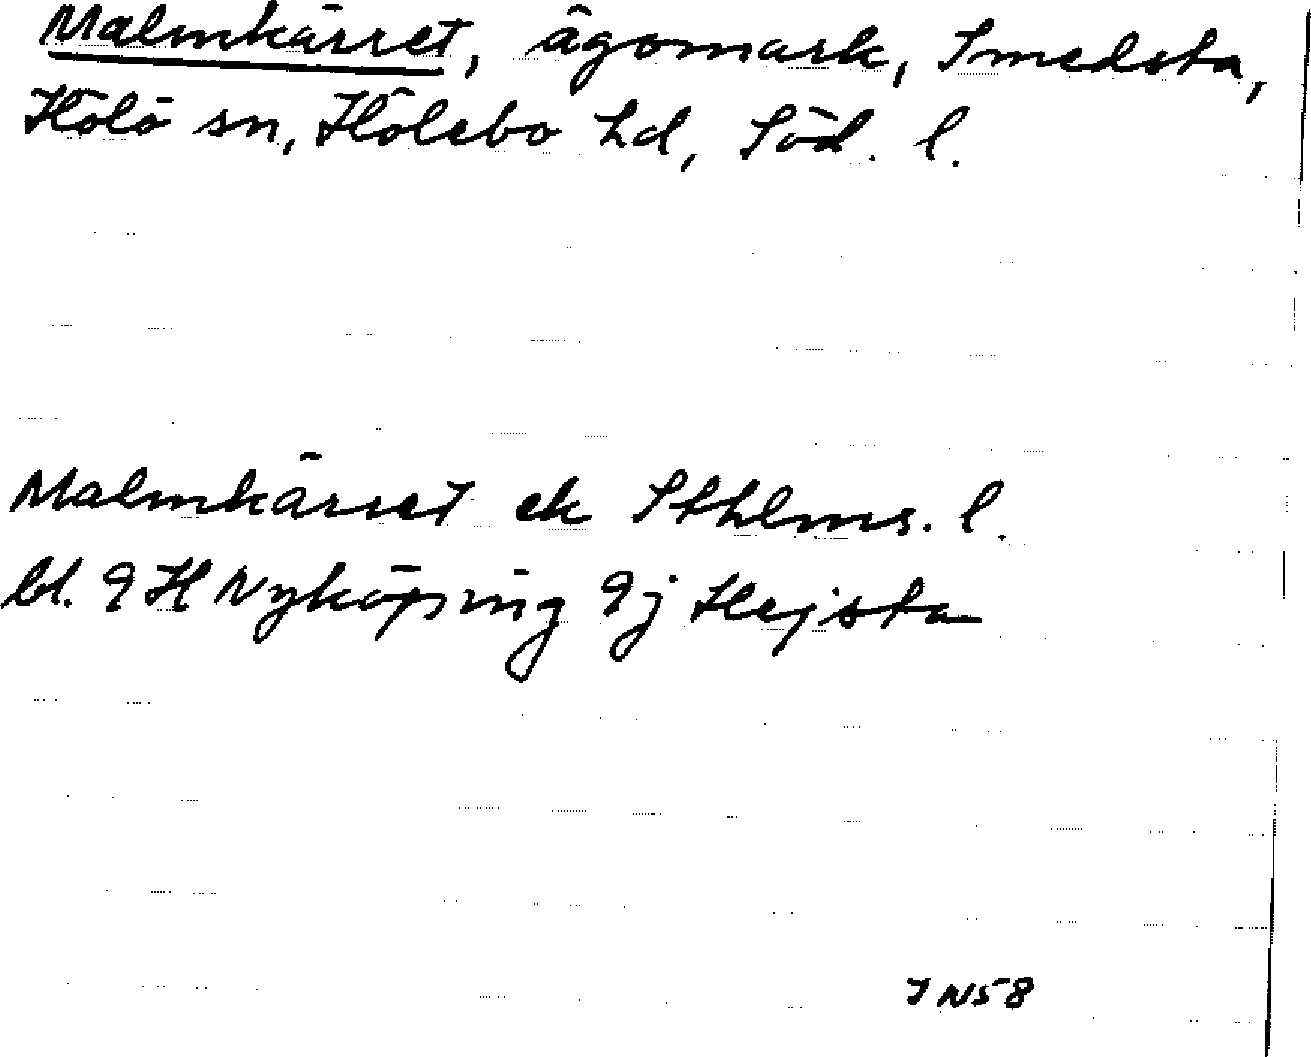 Malmkärret, ägomark, Smedsta,
Hölö sn, Hölebo hd, Söd. l.
Malmkärret ek Sthlms. l.
bl. 9 H Nyköping 9j Hejsta
J N58